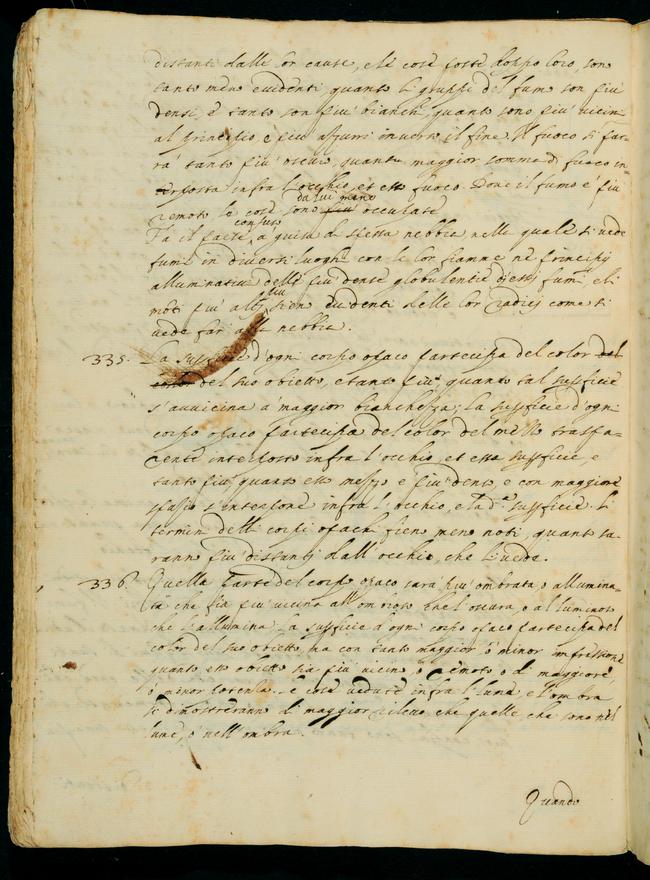 distanti dalle lor cause, e le cose poste doppo loro, son
tanto meno evidenti, quanto li gruppi del fumo son più
densi, e tanto son più bianchi, quanto sono più vicin
al principio e più azurri inverso il fine. Il fuoco si par-
rà tanto più oscuro, quanto maggior somma di fuoco in-
terposta infra l'occhio, et esso fuoco. Dove il fumo è più
da lui meno
remoto le cose sono più occupate
confuso
Fa il paese, a guisa di spessa nebbia nella quale si vede
fumi in diversi luoghi con le lor fiamme ne principij
alluminatrici delle più dense globulentie d'essi fumi, e li
più
moti più alti sien evidenti delle lor radici come si
vede far alla nebbia.
335. La superficie d'ogni corpo opaco partecipa del color del
color del suo obietto, e tanto più, quanto tal superficie
s'avvicina a maggior bianchezza; La superficie d'ogni
corpo opaco partecipa del color del mezzo traspa-
rente interposto infra l'occhio, et essa superficie, e
tanto più quanto esso mezzo e più denso, e con maggiore
spatio s'interpone infra l'occhio, e la d.ª superficie. Li
termini delli corpi opachi fien meno noti, quanto sa-
ranno più distantij dall'occhio, che li vede.
336. Quella parte del corpo opaco sarà più ombrata, o allumina-
ta che fia più vicina all'ombroso che l'oscura, o al luminoso
che l'allumina. La superficie d'ogni corpo opaco partecipa del
color del suo obietto, ma con tanto maggior o minor impressione
quanto esso obietto sia più vicino o remoto o di maggiore
o minor potenza. Le cose vedute infra l'lume e l'ombra
si dimostreranno di maggior rilievo che quelle che sono nel
lume, o nell'ombra.
Quando